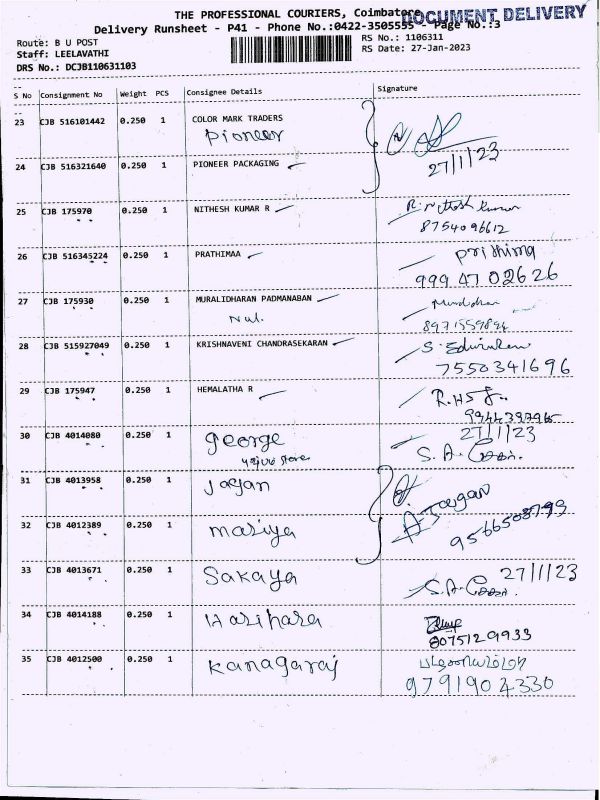 DOCUMENT DELIVERY
THE PROFESSIONAL COURIERS, Coimbatore
Delivery Runsheet - P41 - Phone No.:0422-3505555 - Page No.:3
Route: B U POST
RS No.: 1106311
Staff: LEELAVATHI
RS Date: 27-Jan-2023
DRS No.: DCJB110631103
S No Consignment No Weight PCS Consignee Details Signature
23 CJB 516101442 0.250 1 COLOR MARK TRADERS
Pioneer
27/1/23
24 CJB 516321640 0.250 1 PIONEER PACKAGING
25 CJB 175970 0.250 1 NITHESH KUMAR R
8754096612
26 CJB 516345224 0.250 1 PRATHIMAA
99947 02626
27 CJB 175930 0.250 1 MURALIDHARAN PADMANABAN
28 CJB 515927049 0.250 1 KRISHNAVENI CHANDRASEKARAN
7550341696
29 CJB 175947 0.250 1 HEMALATHA R
30 CJB 4014080 0.250 1 george 27/1/23
stores
31 CJB 4013958 0.250 1 Jagan
Jaygan
32 CJB 4012389 0.250 1 mariya
33 CJB 4013671 0.250 1 Sakaya 27/1/23
34 CJB 4014188 0.250 1 Harihara
8075129933
35 CJB 4012500 0.250 1 Kanagaraj
9791904330